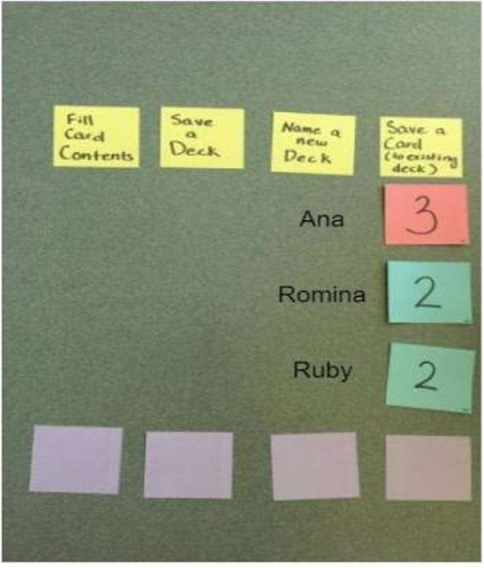 Fill
Card
Contents
Save
a
Deck
Name a
new
Deck
Save a
Card
(to existing
deck)
Ana
3
Romina
2
Ruby
2